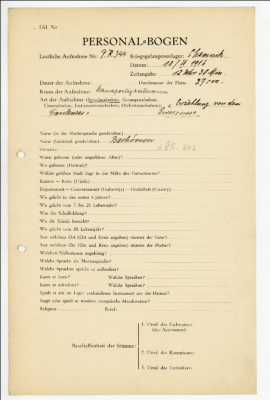 Lfd. Nr.
PERSONAL-BOGEN
Lautliche Aufnahme Nr.: P.K. 344 Kriegsgefangenenlager: Chemnitz
Datum: 1916
Zeitangabe: 12 Uhr 30 Min.
Dauer der Aufnahme: Durchmesser der Platte: 27 cm.
Raum der Aufnahme:
Art der Aufnahme (Sprechaufnahme, Gesangsaufnahme,
Choraufnahme, Instrumentenaufnahme, Orchesteraufnahme): Erzählung von dem
Name (in der Muttersprache geschrieben):
Name (lateinisch geschrieben):
Vorname:
Wann geboren (oder ungefähres Alter)?
Wo geboren (Heimat)?
Welche größere Stadt liegt in der Nähe des Geburtsortes?
Kanton — Kreis (Ujedz)
Departement — Gouvernement (Gubernija) — Grafschaft (County)
Wo gelebt in den ersten 6 Jahren?
Wo gelebt vom 7. bis 20. Lebensjahr?
Was für Schulbildung?
Wo die Schule besucht?
Wo gelebt vom 20. Lebensjahr?
Aus welchem Ort (Ort und Kreis angeben) stammt der Vater?
Aus welchem Ort (Ort und Kreis angeben) stammt die Mutter?
Welchem Volksstamm angehörig?
Welche Sprache als Muttersprache?
Welche Sprachen spricht er außerdem?
Kann er lesen? Welche Sprachen?
Kann er schreiben? Welche Sprachen?
Spielt er ein im Lager vorhandenes Instrument aus der Heimat?
Singt oder spielt er modern europäische Musikweisen?
Religion: Beruf:
Beschaffenheit der Stimme:
1. Urteil des Fachmanns
(des Assistenten):
2. Urteil des Kommissars:
3. Urteil des Technikers: